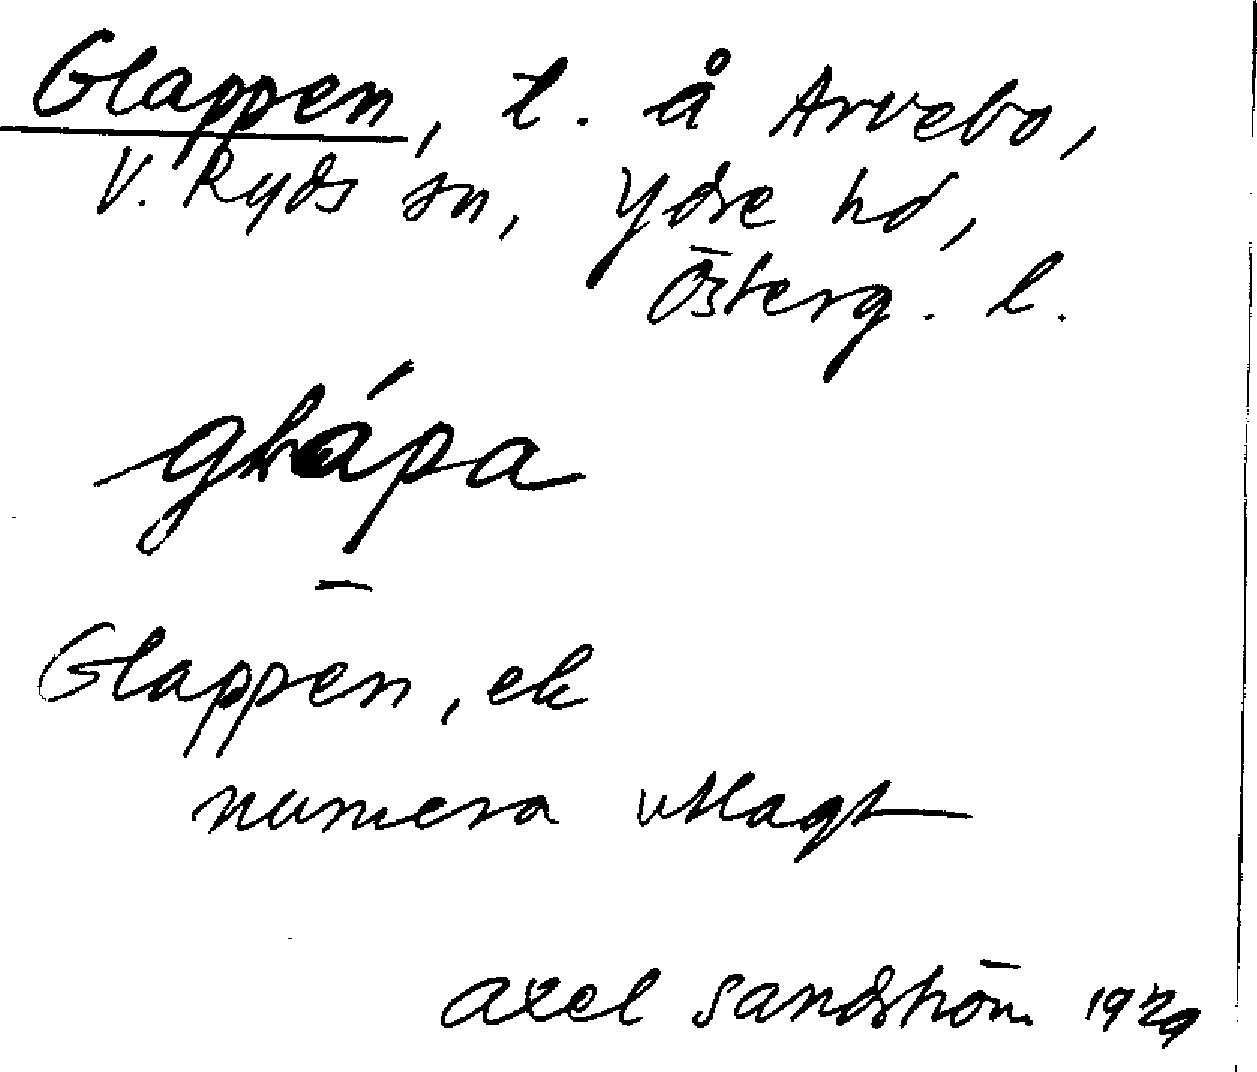 Glappen, t. å Arvebo,
V. Ryds sn, Ydre hd,
Österg. l.
glápa
Glappen, ek
numera utlagt
Axel Sandström 1929